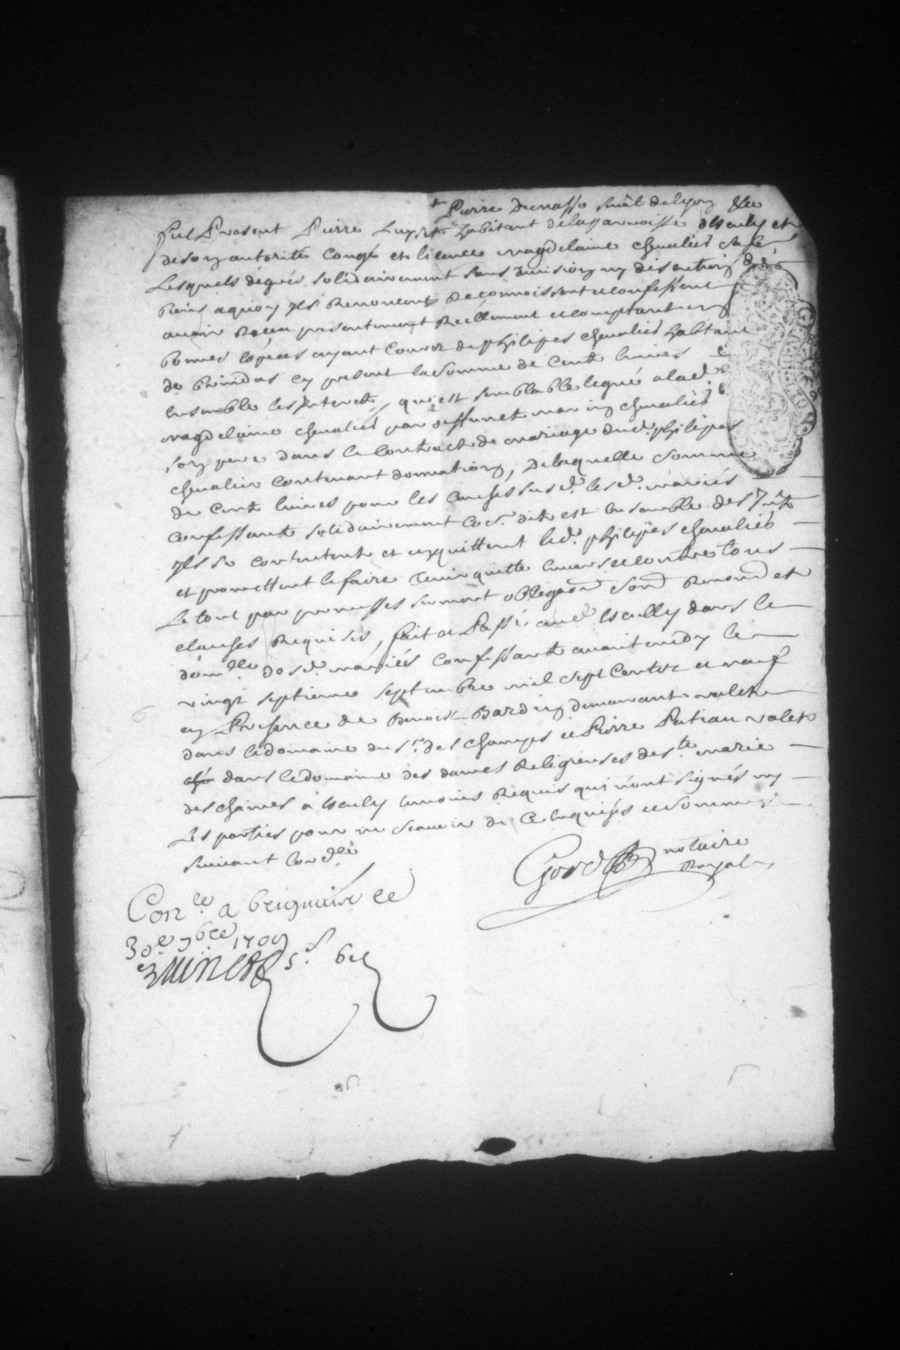 Pierre
fut Present Pierre habitant de la parroisse d'Escully et
de son autorité congé et licence magdelaine chevalier sa fe
Lesquels degrés solidairement sans division ny discution de
biens a quoy ils Renoncent Reconnoissent et confessent
avoir Receu presentement Réellement et comptant en
bonnes espèces ayant cours de philipes chevalier habitant
de Brindas cy present la somme de Cent livres
ensemble les Interets, qu'est semblable legué a lad.
magdelaine chevalier par deffunct chevalier
son pere dans le contract de mariage dud. philipes
chevalier contenant donnation, De laquelle somme
de Cent livres pour les causes susd. lesd. mariés
confessants solidairement co. dit est ensemble des Int.
Ils se contentent et en quittent led. philipes chevalier
et promettent le faire tenir quitte envers et contre tous
Le tout par promesses serment obligaon Renond et
clauses Requises, fait et Passé aud. Escully dans le
domlle desd. mariés confessants avant midy le
vingt septieme septembre mil sept Cents et neuf
en Presence de Benoist Bardin demeurant valet
dans le domaine du sr. des champs et Pierre valet
dans le domaine des dames Religieuses de ste. marie
des chaines à Escully temoins Requis qui n'ont signés ny
Les parties pour ne scavoir de ce enquises et sommés
suivant l'ord.
notaire
Royal
Con.le a brignais ce
30e 9bre 1709